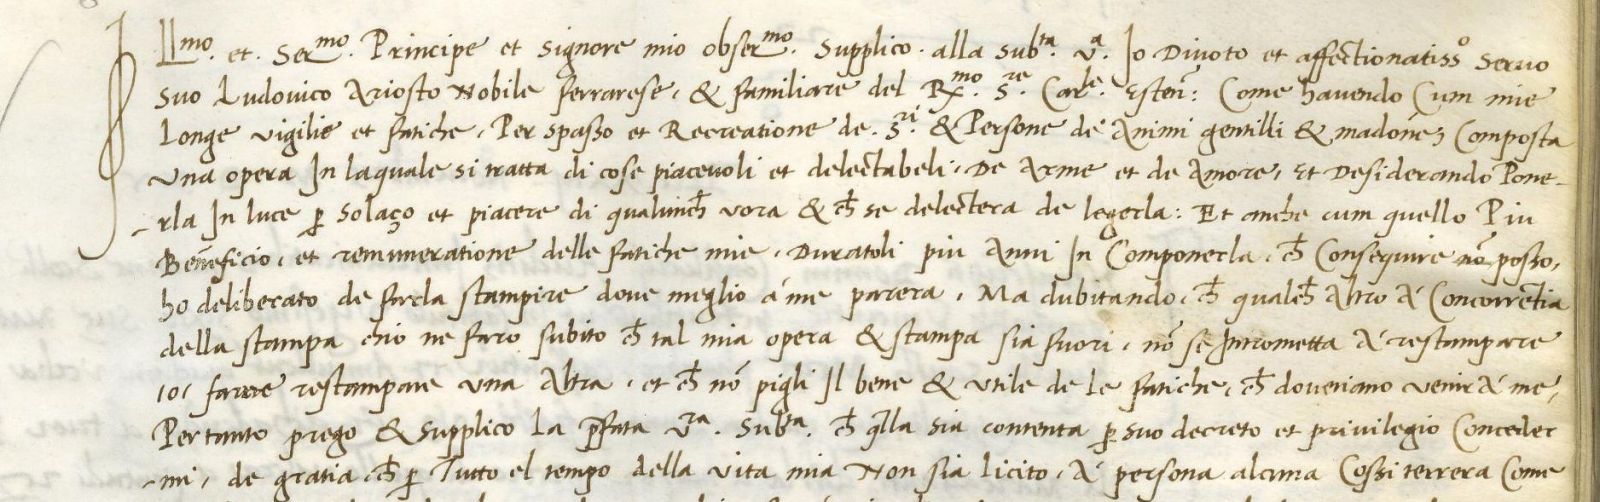 Ill.mo et Ser.mo Principe et signore mio obser.mo. Supplico alla Sub.ta V.a Io Divoto et affectionatiss.o Servo
suo Ludovico Ariosto Nobile ferrarese, & familiare del R.mo S.re Car.le Esten: Come havendo Cum mie
longe vigilie et fatiche, Per spasso et Recreatione de S.ri & Persone de Animi gentilli & madone, Composta
una opera In la quale si tratta di cose piacevoli et delectabeli, De Arme et de Amore, Et Desiderando Pone-
-rla In luce p solaço et piacere di qualunch vora & ch se delectera de legerla: Et anche cum quello Piu
Beneficio, et remuneratione delle fatiche mie, Duratoli piu Anni In Componerla, ch Consequire nõ posso,
ho deliberato de farla stampire dove meglio á me parera, Ma dubitando, ch qualch Altro á Concorrentia
della stampa chio ne faro subito ch tal mia opera & stampa sia fuori, nõ se Intrometta á restampare
o, farne restampare una Altra, et ch nõ pigli Il bene & utile de le fatiche, ch doveriano venir á me,
Pertanto prego & supplico La pfata V.ra Sub.ta ch qlla sia contenta p suo decreto et privilegio Conceder
-mi, de gratia, ch p Tutto el tempo della vita mia Non sia licito, á persona alcuna Cossi terrera Come